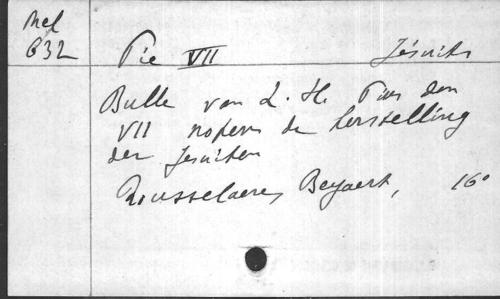 Mel
632
Pie VII Jésuites
Bulle van Z. H. Pius den
VII nopens de herstelling
der Jesuiten
Rousselaere, Beyaert, 16°